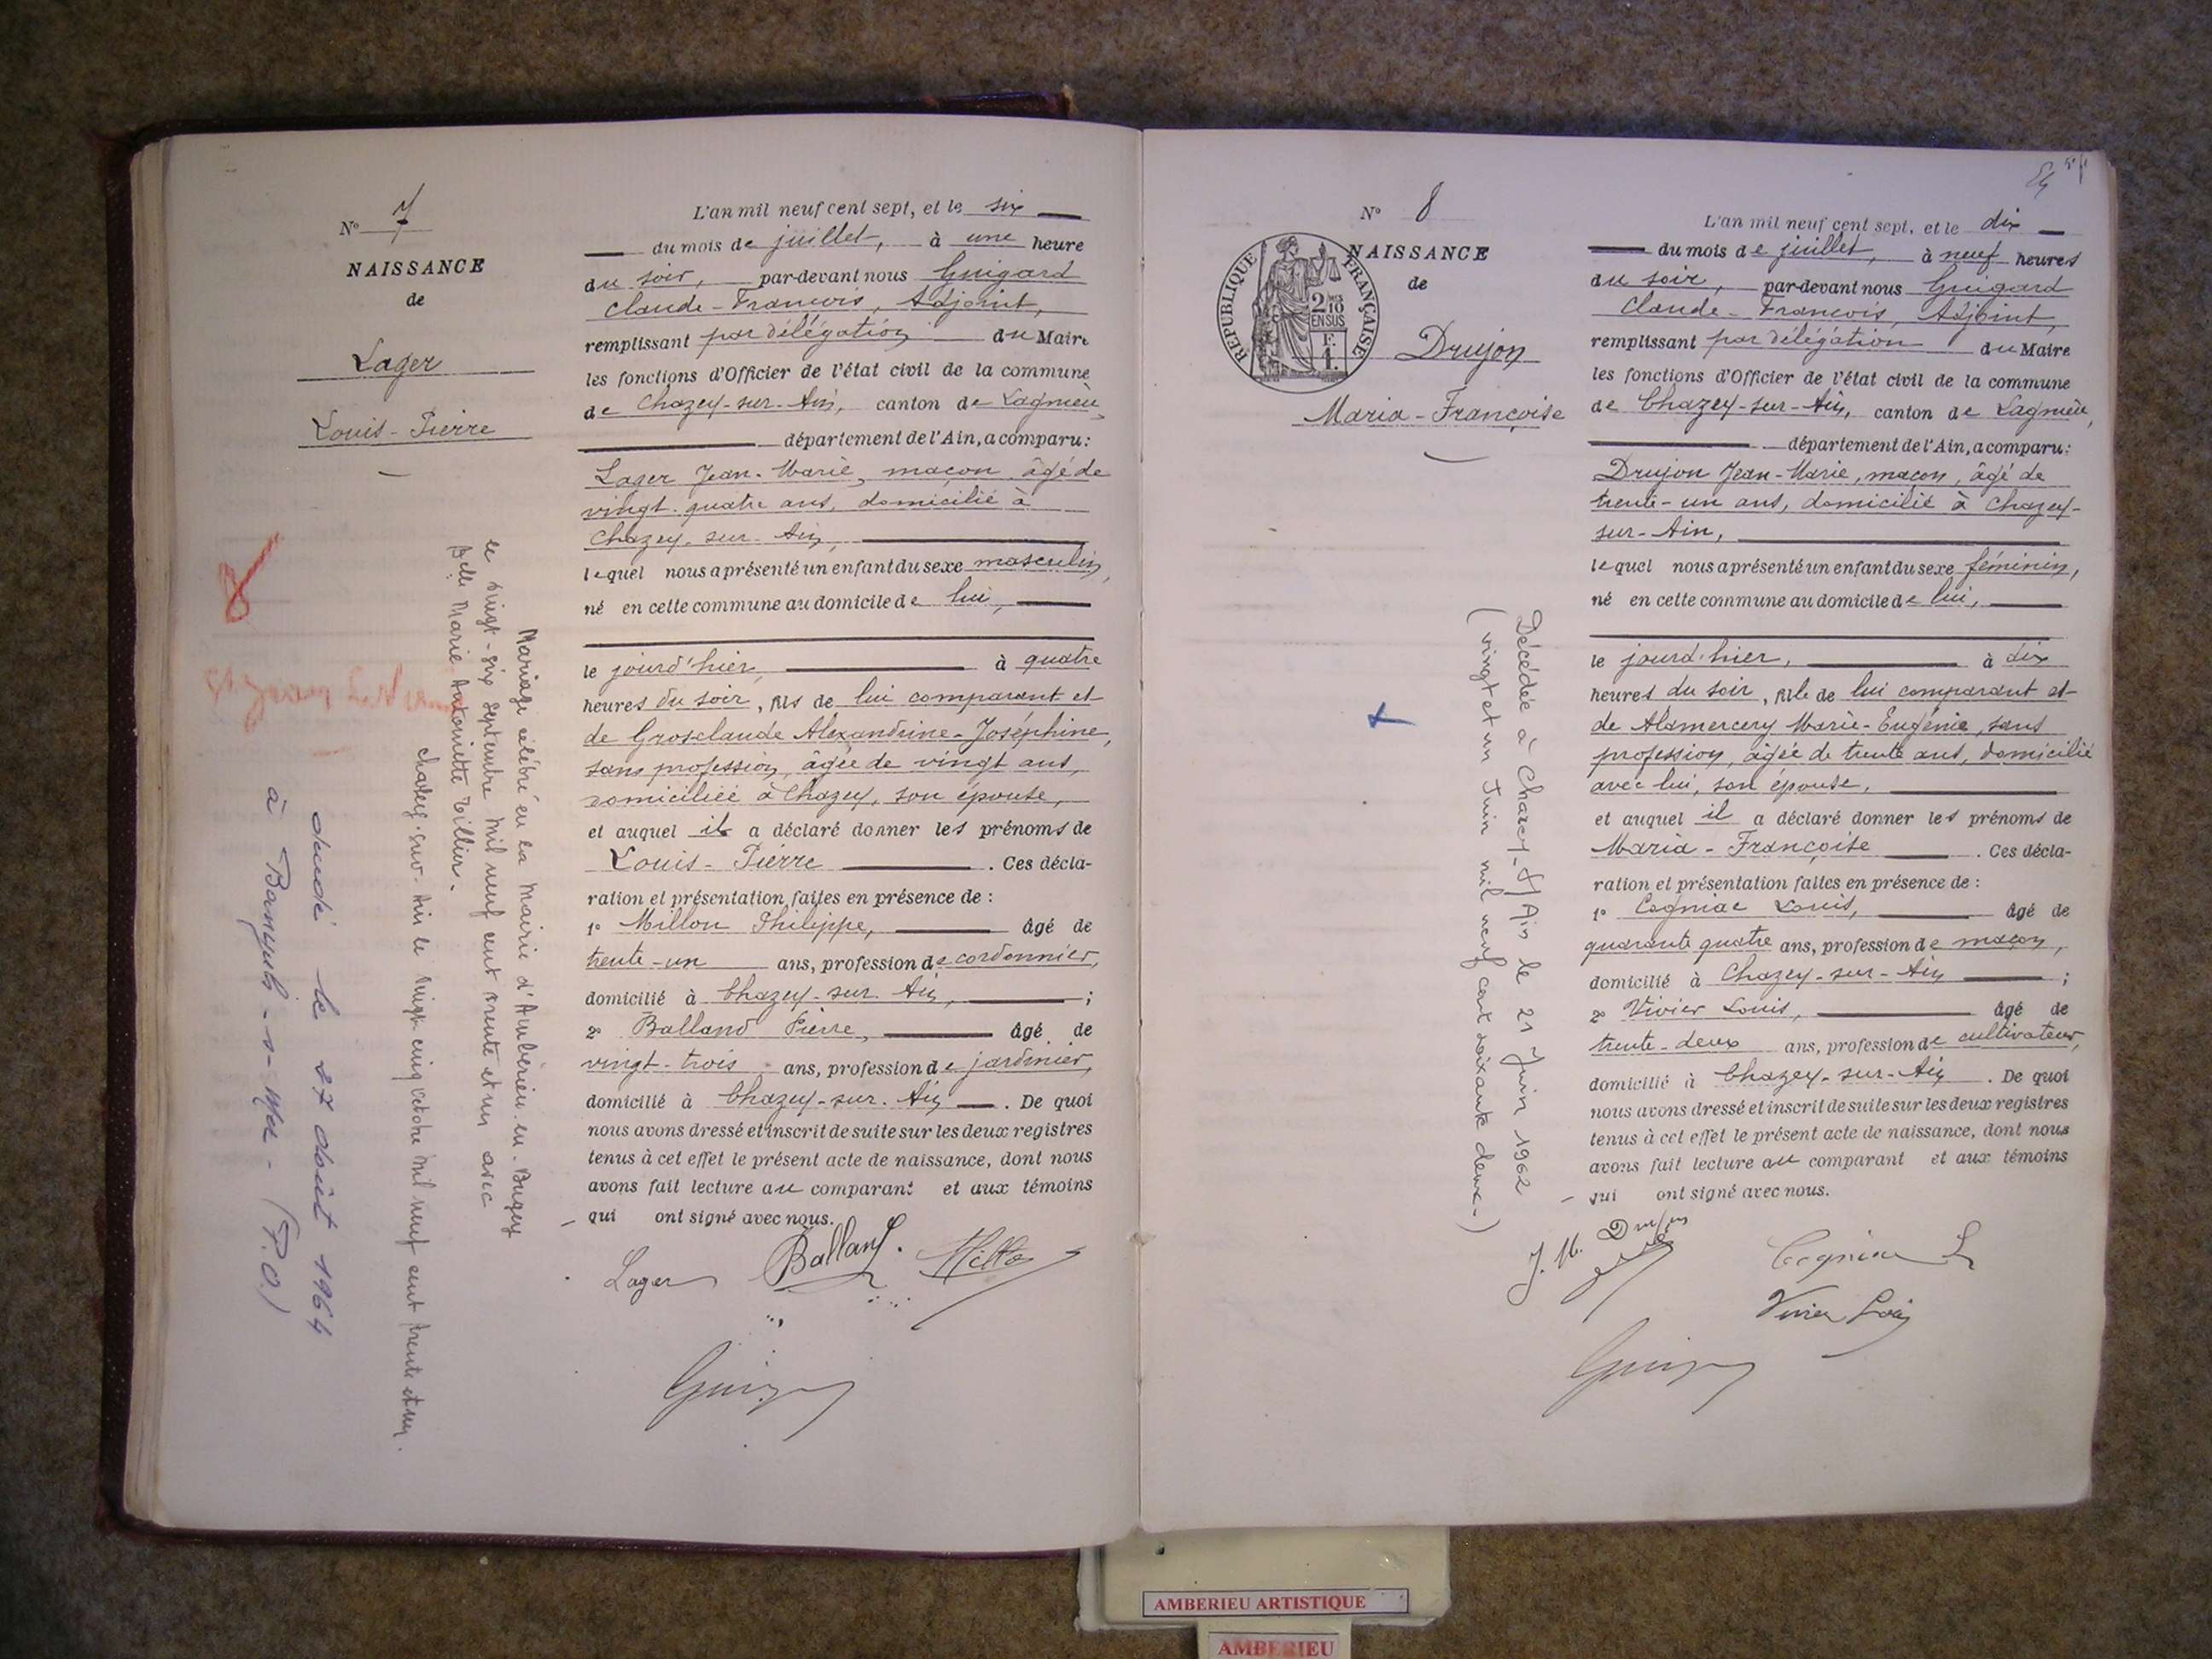 N° 7
NAISSANCE
de
Lager
Louis-Pierre
L'an mil neuf cent sept, et le six
du mois de juillet, à une heure
du soir, par-devant nous Guigard
Claude-François, Adjoint,
remplissant par délégation du Maire
les fonctions d'Officier de l'état civil de la commune
de Chazey-sur-Ain, canton de Lagnieu,
département de l'Ain, a comparu:
Lager Jean-Marie, maçon, âgé de
vingt-quatre ans, domicilié à
Chazey-sur-Ain,
lequel nous a présenté un enfant du sexe masculin,
né en cette commune au domicile de lui,
le jourd'hier, à quatre
heures du soir, fils de lui comparant et
de Grosclaude Alexandrine-Joséphine,
sans profession, âgée de vingt ans,
domiciliée à Chazey, son épouse,
et auquel il a déclaré donner les prénoms de
Louis-Pierre. Ces décla-
ration et présentation faites en présence de :
1° Millon Philippe, âgé de
trente-un ans, profession de cordonnier,
domicilié à Chazey-sur-Ain, ;
2° Balland Pierre, âgé de
vingt-trois ans, profession de jardinier,
domicilié à Chazey-sur-Ain. De quoi
nous avons dressé et inscrit de suite sur les deux registres
tenus à cet effet le présent acte de naissance, dont nous
avons fait lecture au comparant et aux témoins
qui ont signé avec nous.
Lager Balland
Mariage célébré en la Mairie d'Ambérieu-en-Bugey
le vingt-six septembre mil neuf cent trente et un avec
Belle Marie Antoinette Tillier.
Chazey-sur-Ain le vingt cinq octobre mil neuf cent trente et un.
décédé le 27 août 1964
à Banyuls-s-Mer- (P.O.)
N° 8
NAISSANCE
de
RÉPUBLIQUE FRANÇAISE
2/10
EN SUS
F.
1.
Drujon
Maria-Françoise
L'an mil neuf cent sept, et le dix
du mois de juillet, à neuf heures
du soir, par-devant nous Guigard
Claude-François, Adjoint,
remplissant par délégation du Maire
les fonctions d'Officier de l'état civil de la commune
de Chazey-sur-Ain, canton de Lagnieu,
département de l'Ain, a comparu:
Drujon Jean-Marie, maçon, âgé de
trente-un ans, domicilié à Chazey-
sur-Ain,
lequel nous a présenté un enfant du sexe féminin,
né en cette commune au domicile de lui,
le jourd'hier, à dix
heures du soir, fille de lui comparant et
de Alamercery Marie-Eugénie, sans
profession, âgée de trente ans, domicilié
avec lui, son épouse,
et auquel il a déclaré donner les prénoms de
Maria-Françoise. Ces décla-
ration et présentation faites en présence de :
1° Cogniac Louis, âgé de
quarante quatre ans, profession de maçon,
domicilié à Chazey-sur-Ain ;
2° Vivier Louis, âgé de
trente-deux ans, profession de cultivateur,
domicilié à Chazey-sur-Ain. De quoi
nous avons dressé et inscrit de suite sur les deux registres
tenus à cet effet le présent acte de naissance, dont nous
avons fait lecture au comparant et aux témoins
qui ont signé avec nous.
J. M. Drujon
Vivier Louis
Décédée à Chazey-s/Ain le 21 Juin 1962
(vingt et un Juin mil neuf cent soixante deux-)
AMBERIEU ARTISTIQUE
AMBERIEU